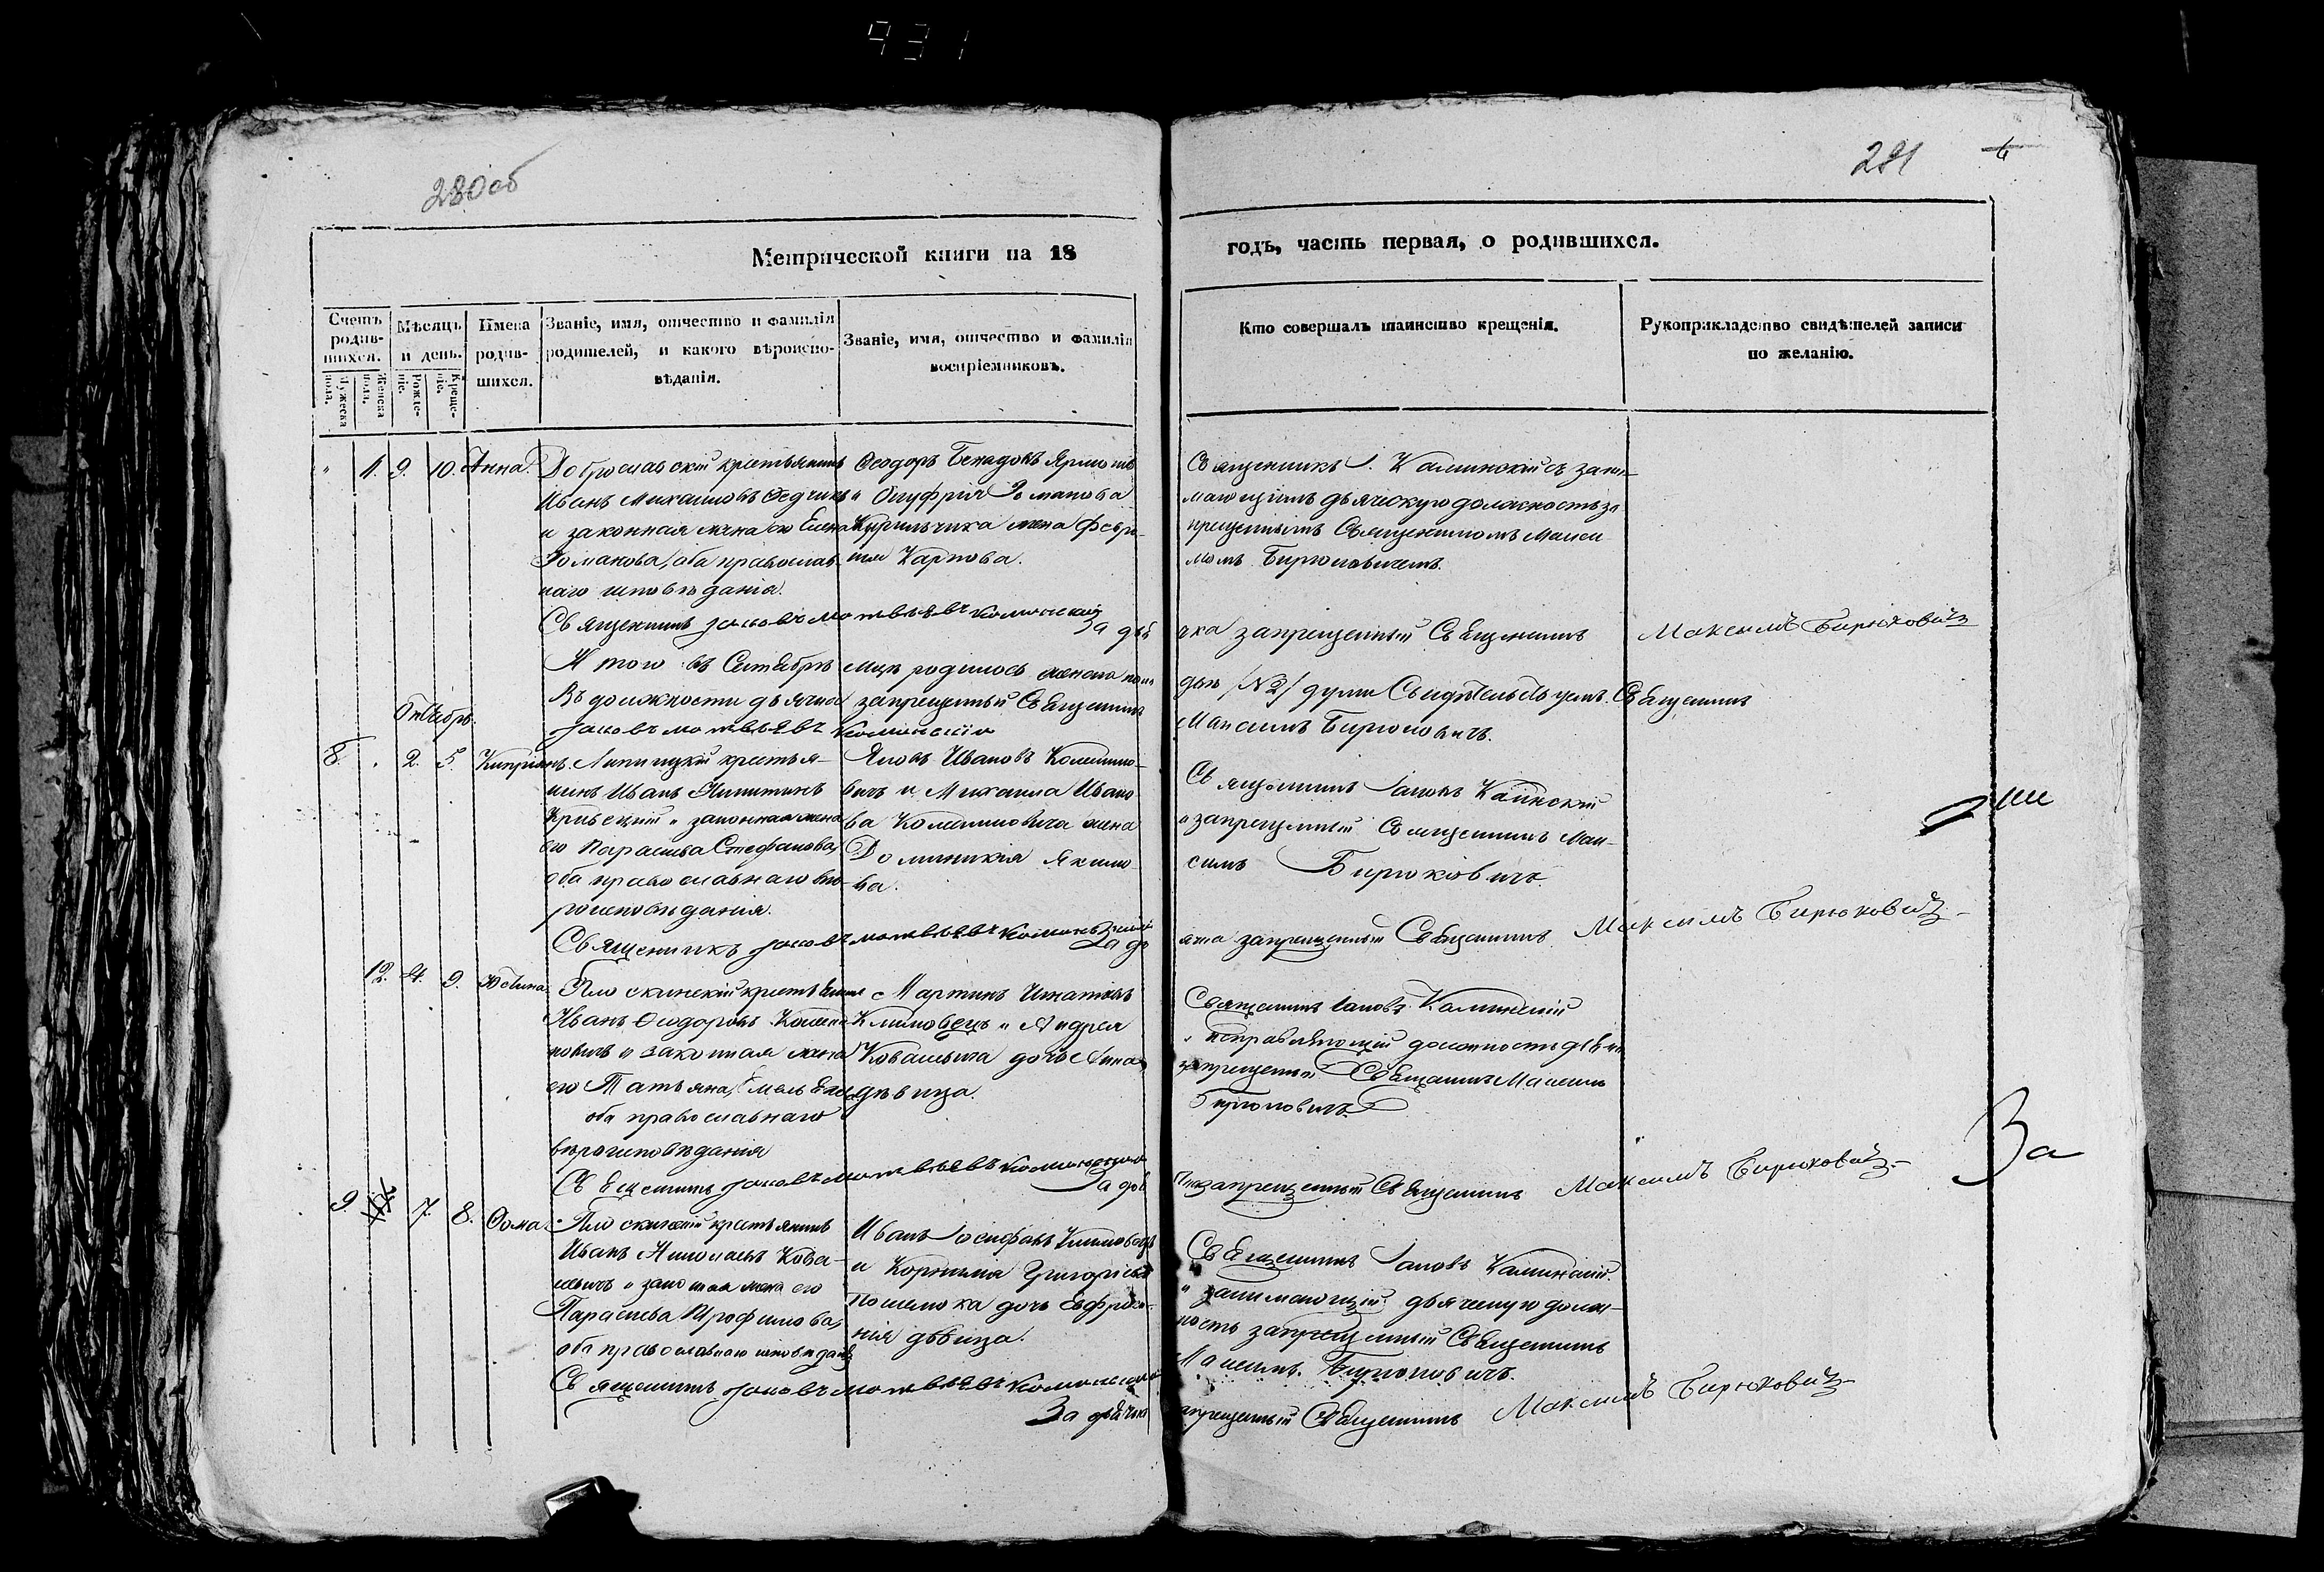 931
280об
281
Метрической книги на 18
годъ, часть первая, о родившихся.
Счетъ родив-шихся.
Мужеска пола.
Женска пола.
Мѣсяцъ и день.
Рожде-ніе.
Креще-ніе.
Имена родив-шихся.
Званіе, имя, отчество и фамилія
родителей, и какого вѣроиспо-
вѣданія.
Званіе, имя, отчество и фамилія
воспріемниковъ.
Кто совершалъ таинство крещенія.
Рукоприкладство свидѣтелей записи
по желанію.
11. 9. 10. Анна.
Доброславскій крестьянинъ
Иванъ Михаиловъ Федчикъ
и законная жена его Елена
Романова, оба православ-
наго исповѣданія.
Ѳеодоръ
и Онуфрія Романова
Кирильчика жена Февро-
нія Карпова.
Священникъ І. Каминскій съ зани-
мающимъ дьяческую должность за
прещеннымъ Священникомъ Макси
момъ Бирюковичемъ.
Священникъ Іаковъ Матвѣевъ Каминскій
За дья
чка запрещенный Священникъ
Максимъ Бирюковичъ
Итого въ Сентябрѣ мцѣ родилось женска пола
двѣ /№2/ души Свидѣтельствуемъ. Священникъ
Въ должности дьячка запрещенный Священникъ
Максимъ Бирюковичъ.
Іаковъ Матвѣевъ Каминскій
Октябрь.
8. 2. 5. Кипріанъ.
крестья-
нинъ Иванъ Никитинъ
и законная жена
его Параскева Стефанова,
оба православнаго вѣ-
роисповѣданія.
Яковъ Ивановъ
вичъ и Михаила Ивано
ва жена
Домникія Якимо
ва.
Священникъ Іаковъ Каминскій
и запрещенный Священникъ Мак-
симъ Бирюковичъ.
Священникъ Іаковъ Матвѣевъ Каминскій
За дь
ячка запрещенный Священникъ
Максимъ Бирюковичъ
12. 4. 9. Юстина.
Плоскинскій крестьянинъ
Иванъ Ѳеодоровъ
и законная жена
его Татьяна Емельянова
оба православнаго
вѣроисповѣданія
Мартинъ Игнатовъ
Климовецъ и Андрея
Ковалевича дочь Анна,
дѣвица.
Священникъ Іаковъ Каминскій
и исправляющій должность дьячка
запрещенный Священникъ Максимъ
Бирюковичъ.
Священникъ Іаковъ Матвѣевъ Каминскій
За дья
чка запрещенный Священникъ
Максимъ Бирюковичъ
За
9. 7. 8. Ѳома.
Плоскинскій крестьянинъ
Иванъ Николаевъ Кова-
левичъ и законная жена его
Параскева Трофимова,
оба православнаго исповѣданія
Иванъ Іосифовъ Климовецъ
и Корнилія Григорьева
дочь Евфроси-
нія дѣвица.
Священникъ Іаковъ Каминскій
и занимающій дьяческую долж-
ность запрещенный Священникъ
Максимъ Бирюковичъ.
Священникъ Іаковъ Матвѣевъ Каминскій
За дьячка
запрещенный Священникъ
Максимъ Бирюковичъ